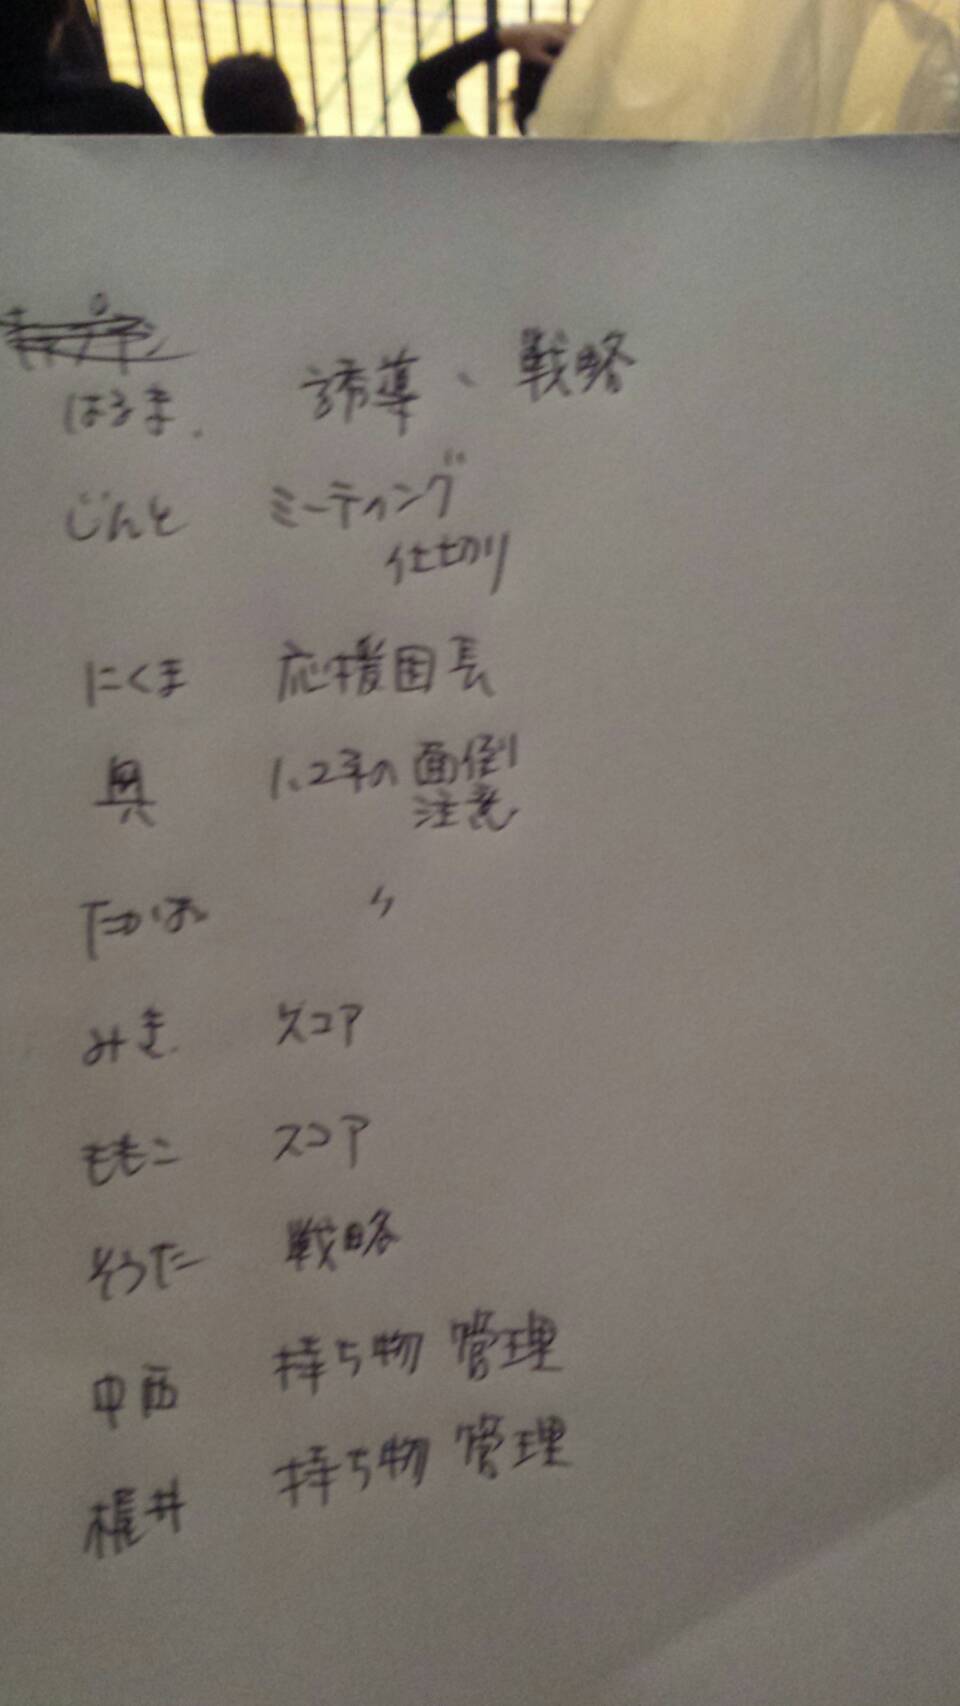 はるま. 誘導、戦略
じんと ミーティング
仕切り
にくま 応援団長
奥 1、2年の面倒
注意
たかは 〃
みき スコア
ももこ スコア
そうた 戦略
中西 持ち物 管理
梶井 持ち物 管理